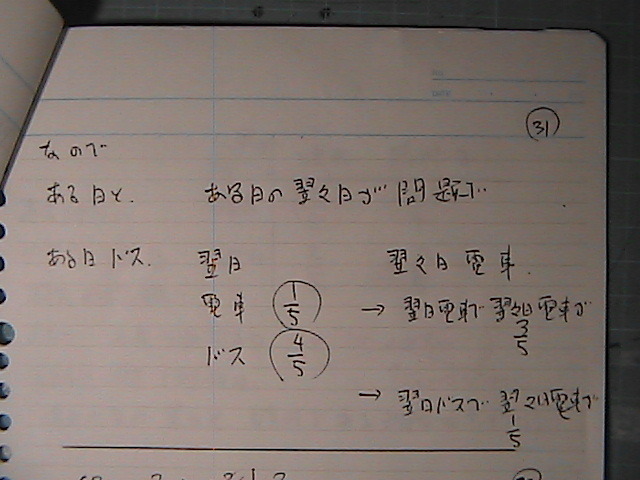 NO.
DATE
31
なので
ある日と、 ある日の翌々日が 問題で
ある日バス、 翌日 翌々日 電車、
電車 1/5 → 翌日電車で 翌々日電車が 3/5
バス 4/5
→ 翌日バスで 翌々日電車で 1/5